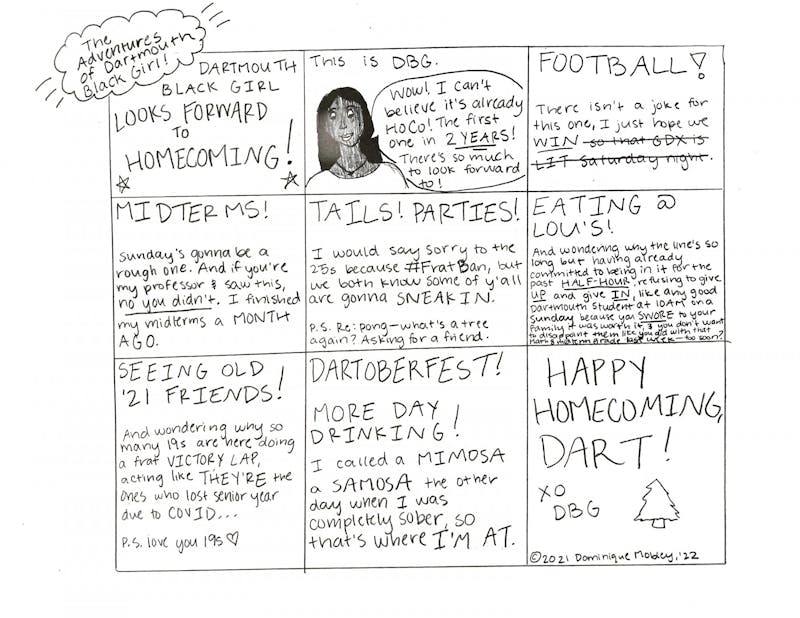 The
Adventures
of Dartmouth
Black Girl!
DARTMOUTH
BLACK GIRL
LOOKS FORWARD
TO
HOMECOMING!
This is DBG.
Wow! I can't
believe it's already
HoCo! The first
one in 2 YEARS!
There's so much
to look forward
to!
FOOTBALL!
There isn't a joke for
this one, I just hope we
WIN so that GDX is
LIT Saturday night.
MIDTERMS!
Sunday's gonna be a
rough one. And if you're
my professor & saw this,
no you didn't. I finished
my midterms a MONTH
AGO.
TAILS! PARTIES!
I would say sorry to the
25s because #FratBan, but
we both know some of y'all
are gonna SNEAK IN.
P.S. Re: pong—what's a tree
again? Asking for a friend.
EATING @
LOU'S!
And wondering why the line's so
long but having already
committed to being in it for the
past HALF-HOUR, refusing to give
UP and give IN, like any good
Dartmouth student at 10AM on a
Sunday because you SWORE to your
family it was worth it, & you don't want
to disappoint them like you did with that
grade last week—too soon?
SEEING OLD
'21 FRIENDS!
And wondering why so
many 19s are here doing
a frat VICTORY LAP,
acting like THEY'RE the
ones who lost senior year
due to COVID...
P.S. love you 19s ♡
DARTOBERFEST!
MORE DAY
DRINKING!
I called a MIMOSA
a SAMOSA the other
day when I was
completely sober, so
that's where I'M AT.
HAPPY
HOMECOMING,
DART!
XO
DBG
©2021 Dominique Mobley, '22